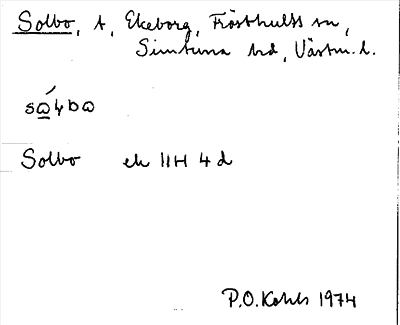 Solbo, t, Ekeborg, Frösthults sn,
Simtuna hd, Västm. l.
Solbo ek 11H 4 d
P.O. Kohls 1974